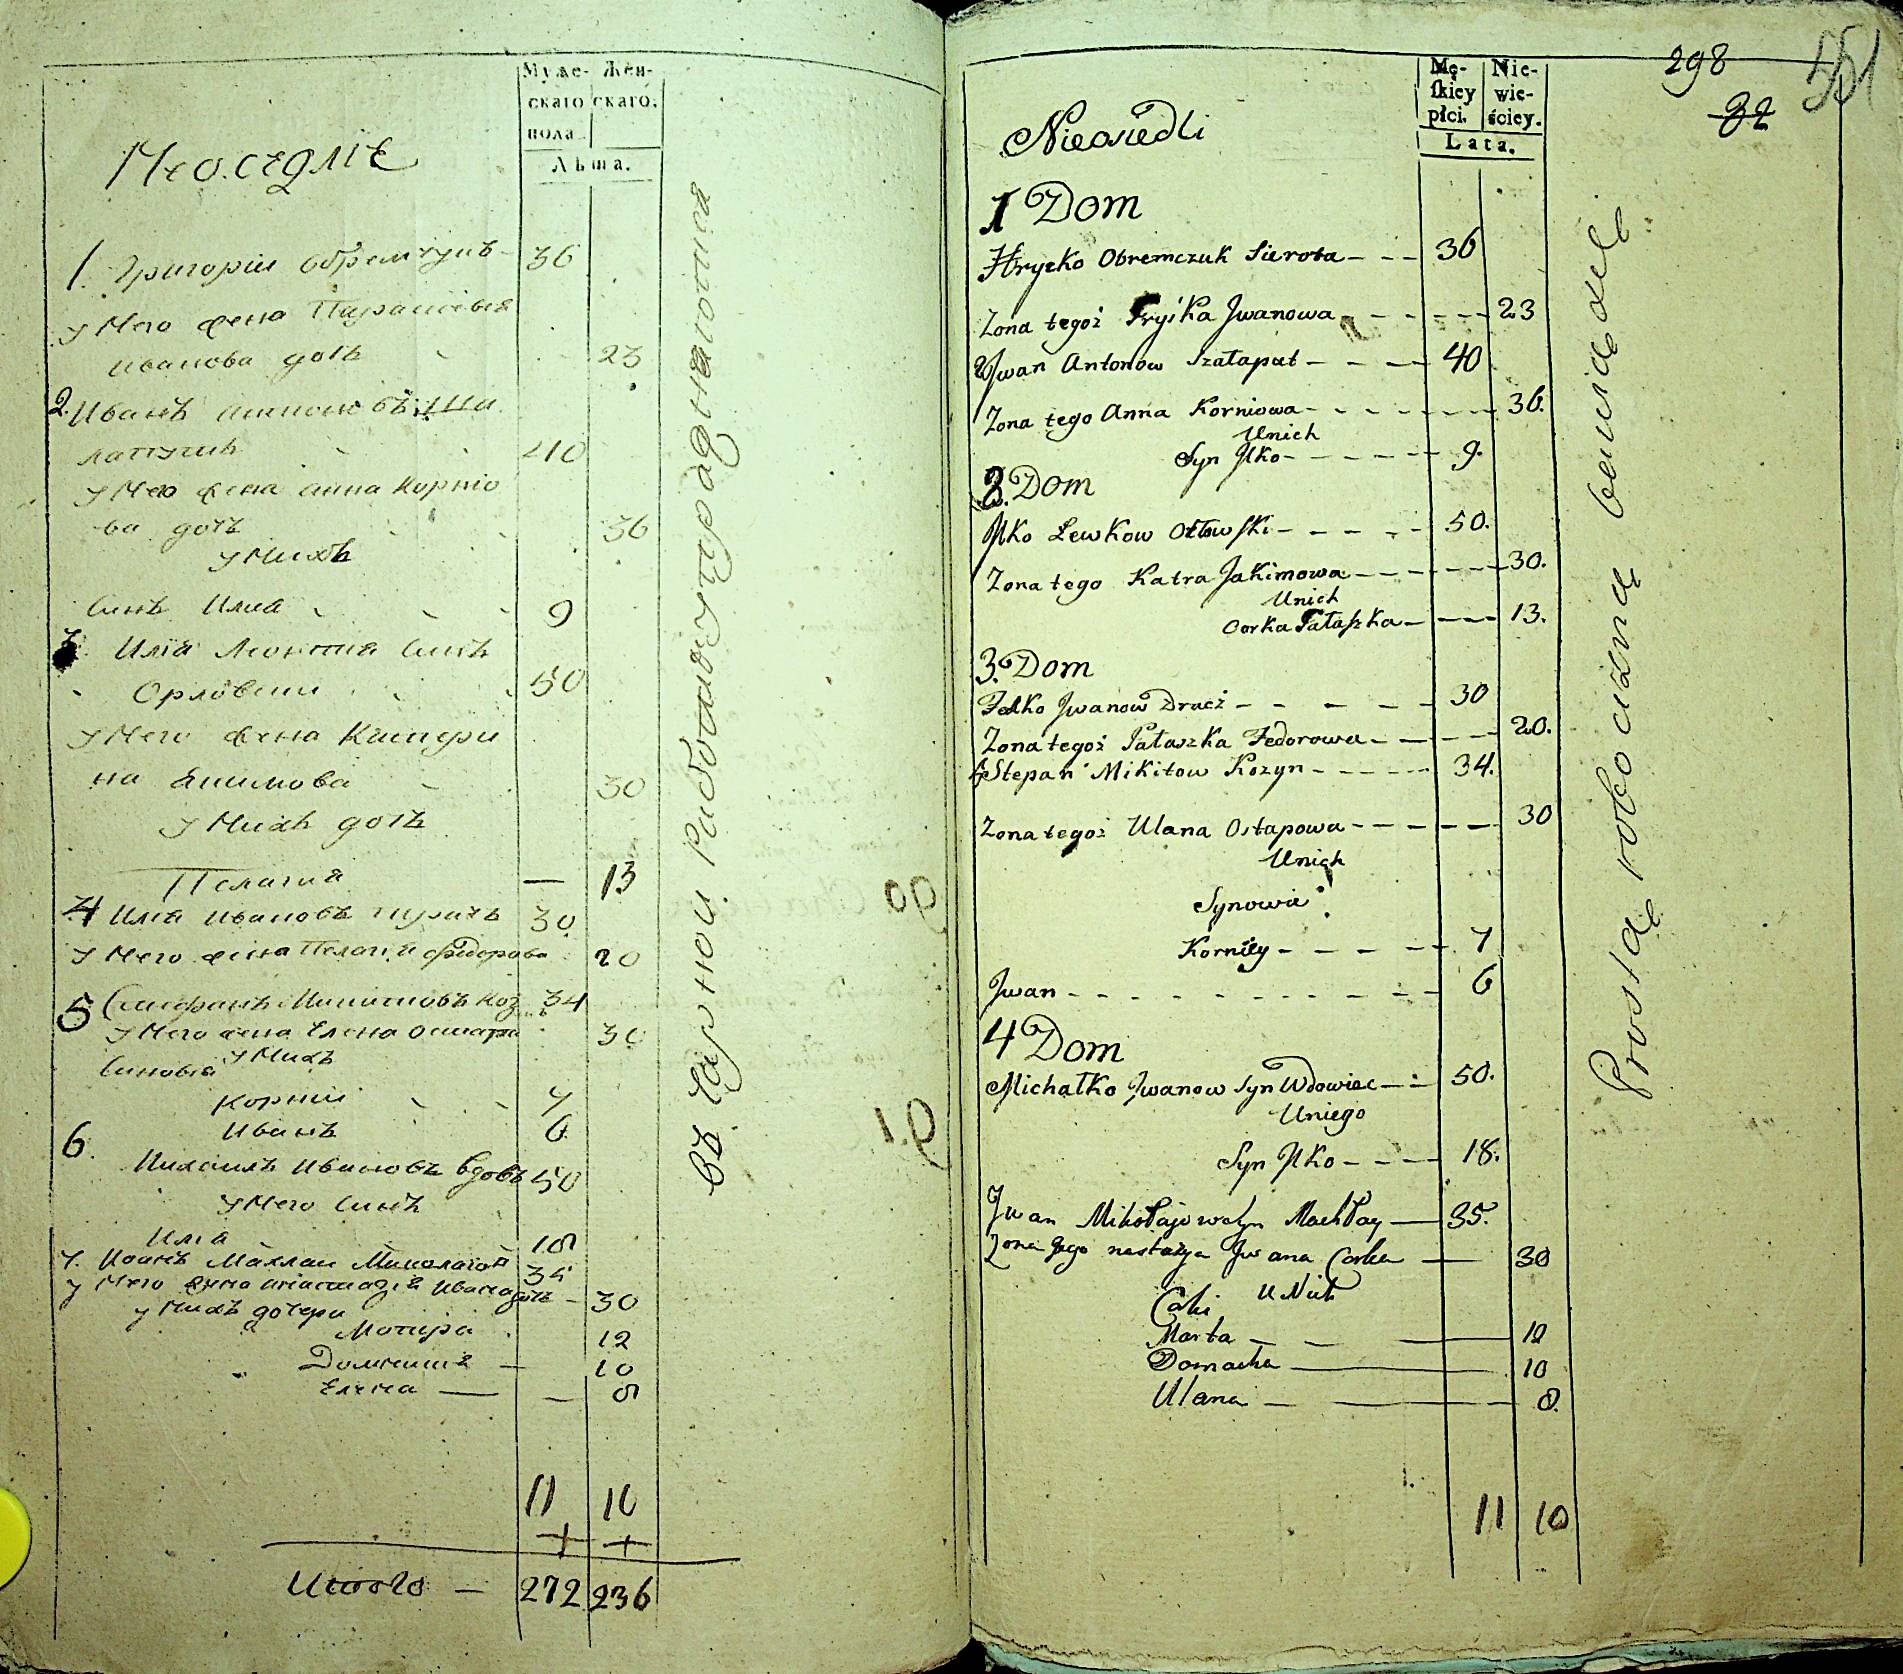 Муже- Жен-
скаго скаго.
пола.
Лѣта.
Неоседліе
1. Григорій Обремчукъ 36
У него жена Парасковья
Иванова дочь 23
2. Иванъ Антоновъ Ша
лапутъ 40
У него жена Анна Корніо
ва дочь 36
У нихъ
Синъ Илиа 9
3 Илиа Леонтия Синъ
Орловски 50
У него жена Катери
на Якимова 30
У нихъ дочь
Пелагия — 13
4 Илиа Ивановъ 30
У него жена Пелагия Федорова 20
5 Стефанъ Микитовъ Коз 34
У него жена Елена Остапа 30
У нихъ
Синовья
Корнїй 7
Иванъ 6
6. Михаилъ Ивановъ Вдовъ 50
У него Синъ
Илиа 18
7. Иоанъ Махлаи Миколаювъ 35
У него жена Анастазия Ивана дочь — 30
у нихъ дочери
Мотира 12
Домникия — 10
Елена — — 8
11 10
Итого — 272 236
въ Чарной Работы упражняются
298
32
551
Mę- Nie-
skiey wie-
płci. ściey.
Lata.
Nieosiedli
1 Dom
Hrycko Obremczuk Sierota - - - 36
Zona tegoż Pryśka Jwanowa - - - - - 23
2 Jwan Antonow Szałaput - - - - 40
Zona tego Anna Korniowa - - - - - - - 36.
Unich
Syn Jlko - - - - - 9.
2. Dom
Jlko Lewkow Orłowski - - - - - 50.
Zona tego Katra Jakimowa - - - - - - 30.
Unich
Corka Pałaszka - - - - 13.
3. Dom
Fedko Jwanow Dracz - - - - - 30
Zona tegoż Pałaszka Fedorowa - - - - 20.
Stepan Mikitow Kozyn - - - - - 34.
Zona tegoż Ulana Ostapowa - - - - - - 30
Unich
Synowie
Korniey - - - - - 7
Jwan - - - - - - - - - - - 6
4 Dom
Michałko Jwanow Syn Wdowiec - - 50.
Uniego
Syn Jlko - - - - 18.
Jwan Mikołajow Syn Machłay — 35.
Zona jego nastazya Jwana Corka — 30
U Nich
Corki
Marta — — — 12
Domacha — 10
Ulana — — 8.
11 10
Prostą robocizną bawią się